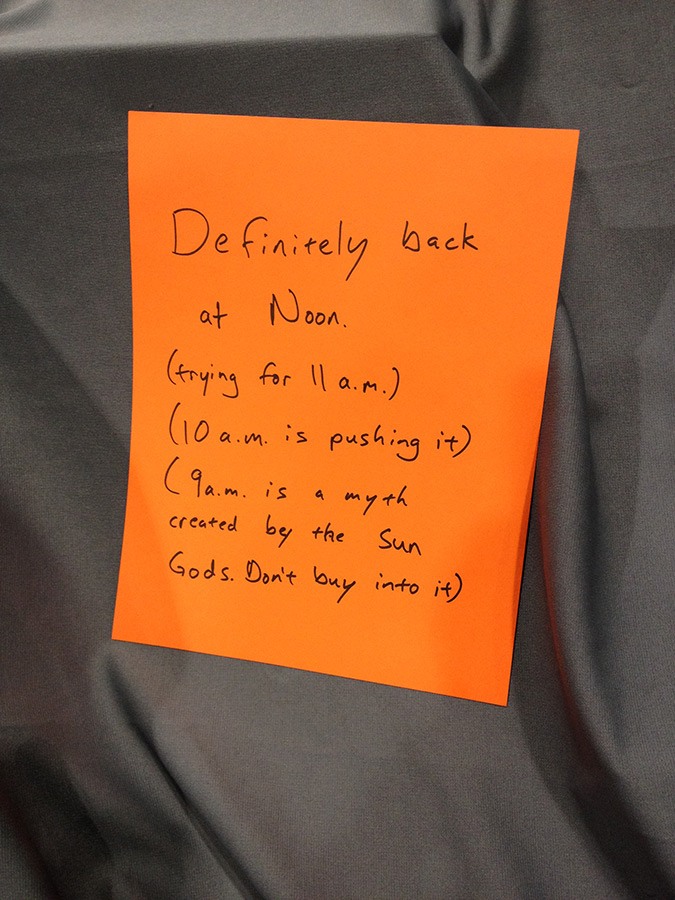 Definitely back
at Noon.
(trying for 11 a.m.)
(10 a.m. is pushing it)
(9a.m. is a myth
created by the Sun
Gods. Don't buy into it)